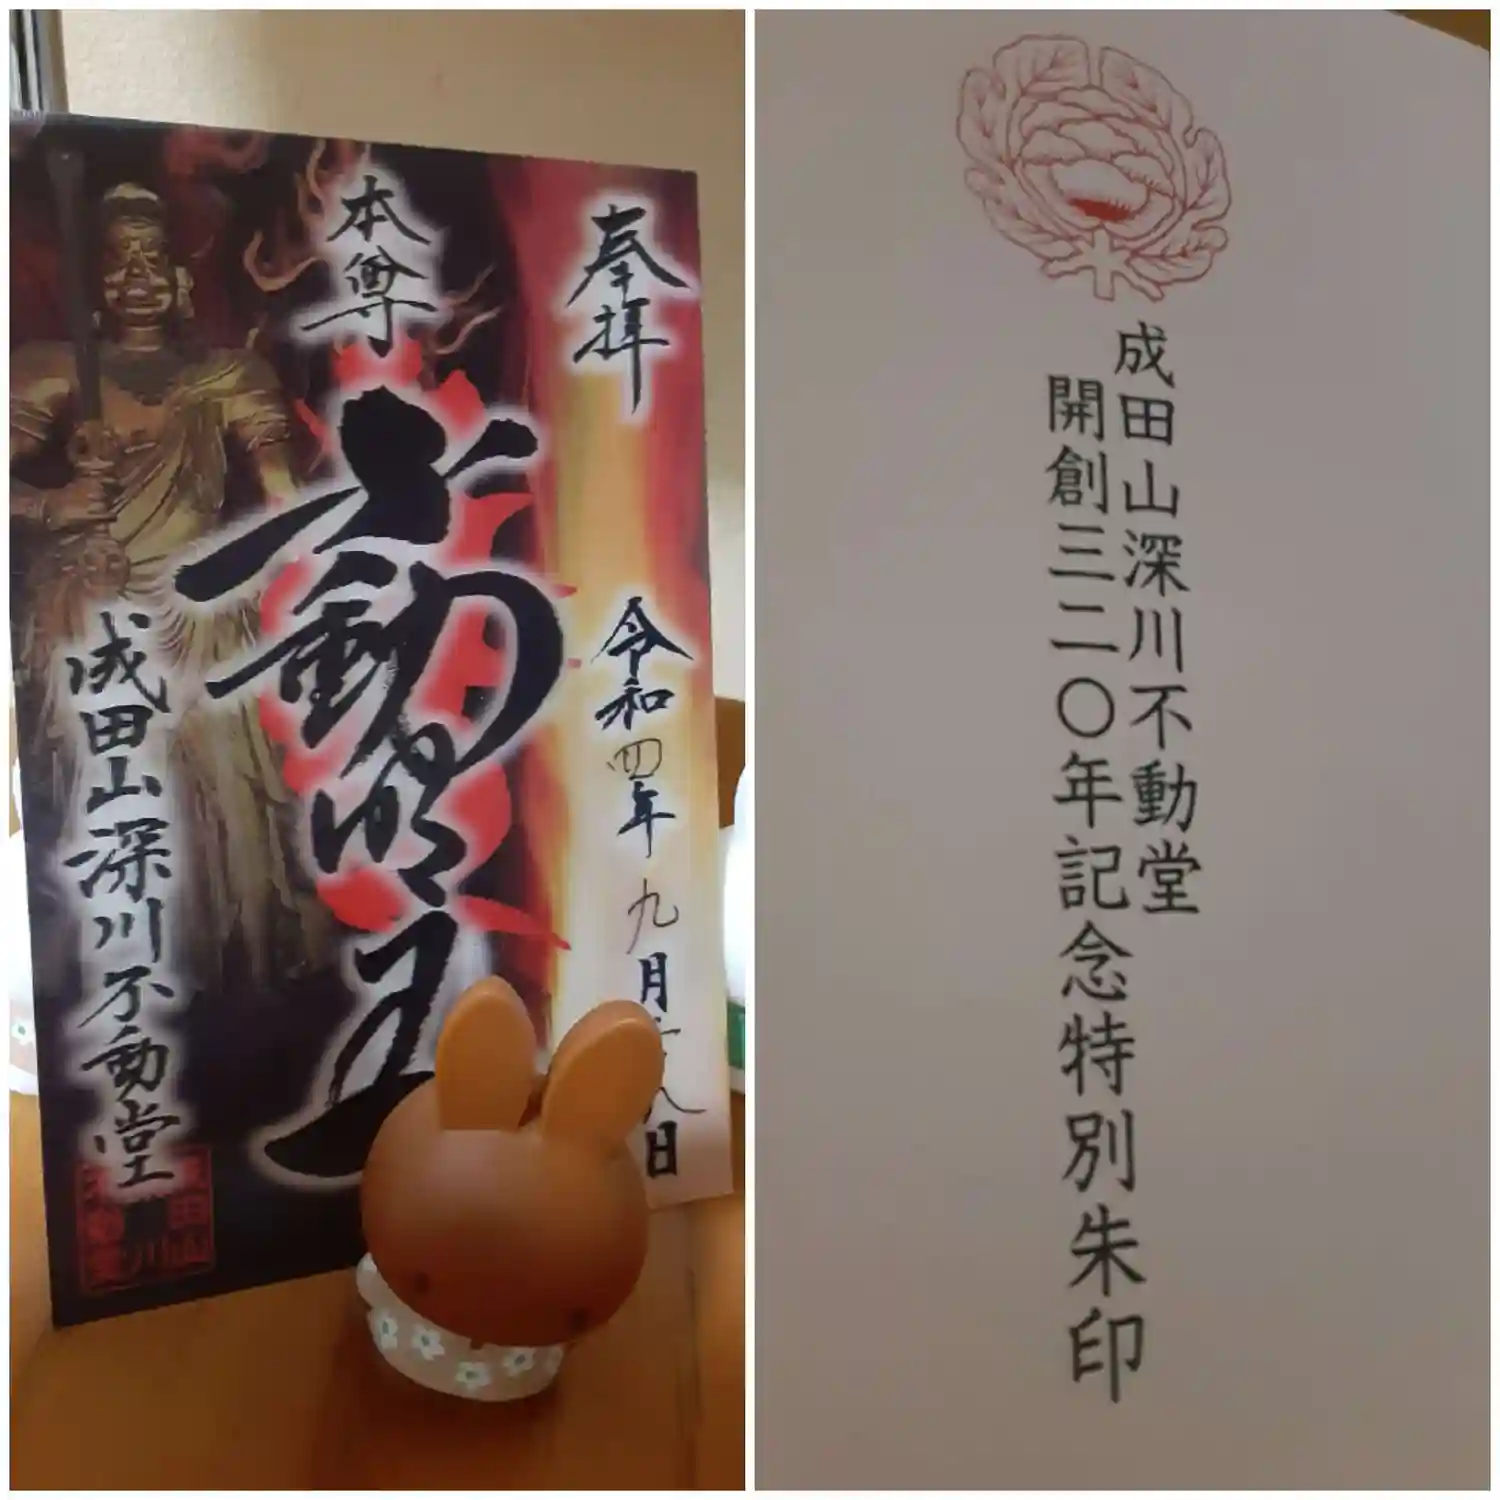 奉拝
令和四年九月
八日
本尊
不動明王
成田山深川不動堂
成田山深川不動堂
開創三二〇年記念特別朱印